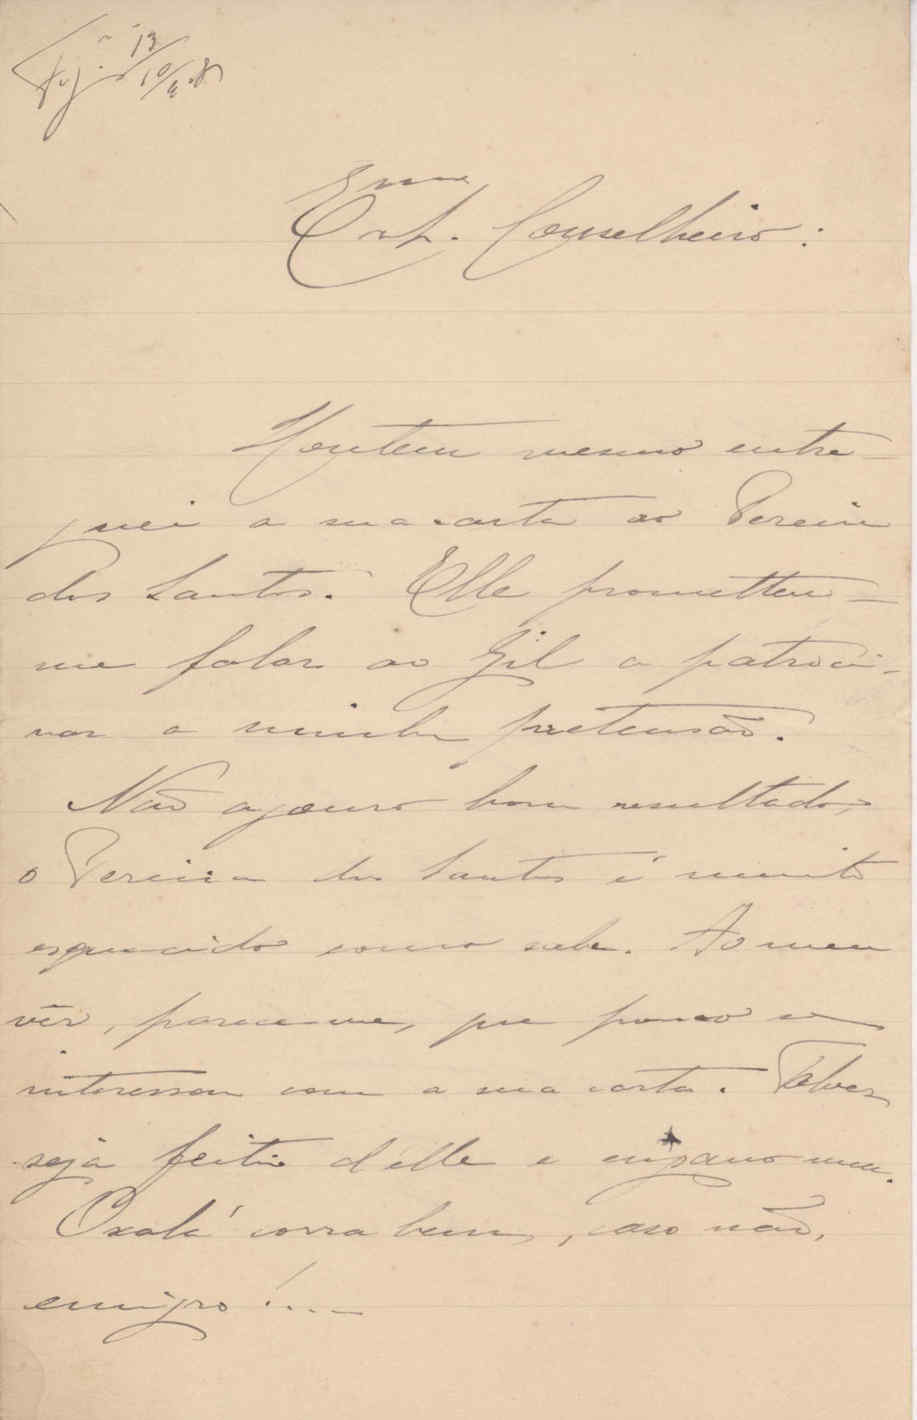 13/10/908
Exmo Conselheiro:
Hontem mesmo entre-
guei a sua carta ao Pereira
dos Santos. Elle prometteu-
me falar ao Gil a patroci-
nar a minha pretensão.
Não agouro bom resultado,
o Pereira dos Santos é muito
esquecido como sabe. Ao meu
vêr, parece-me, que pouco se
interessou com a sua carta. Talvez
seja feitio d'elle e engano meu.
Oxalá corra bem, caso não,
emigro!...